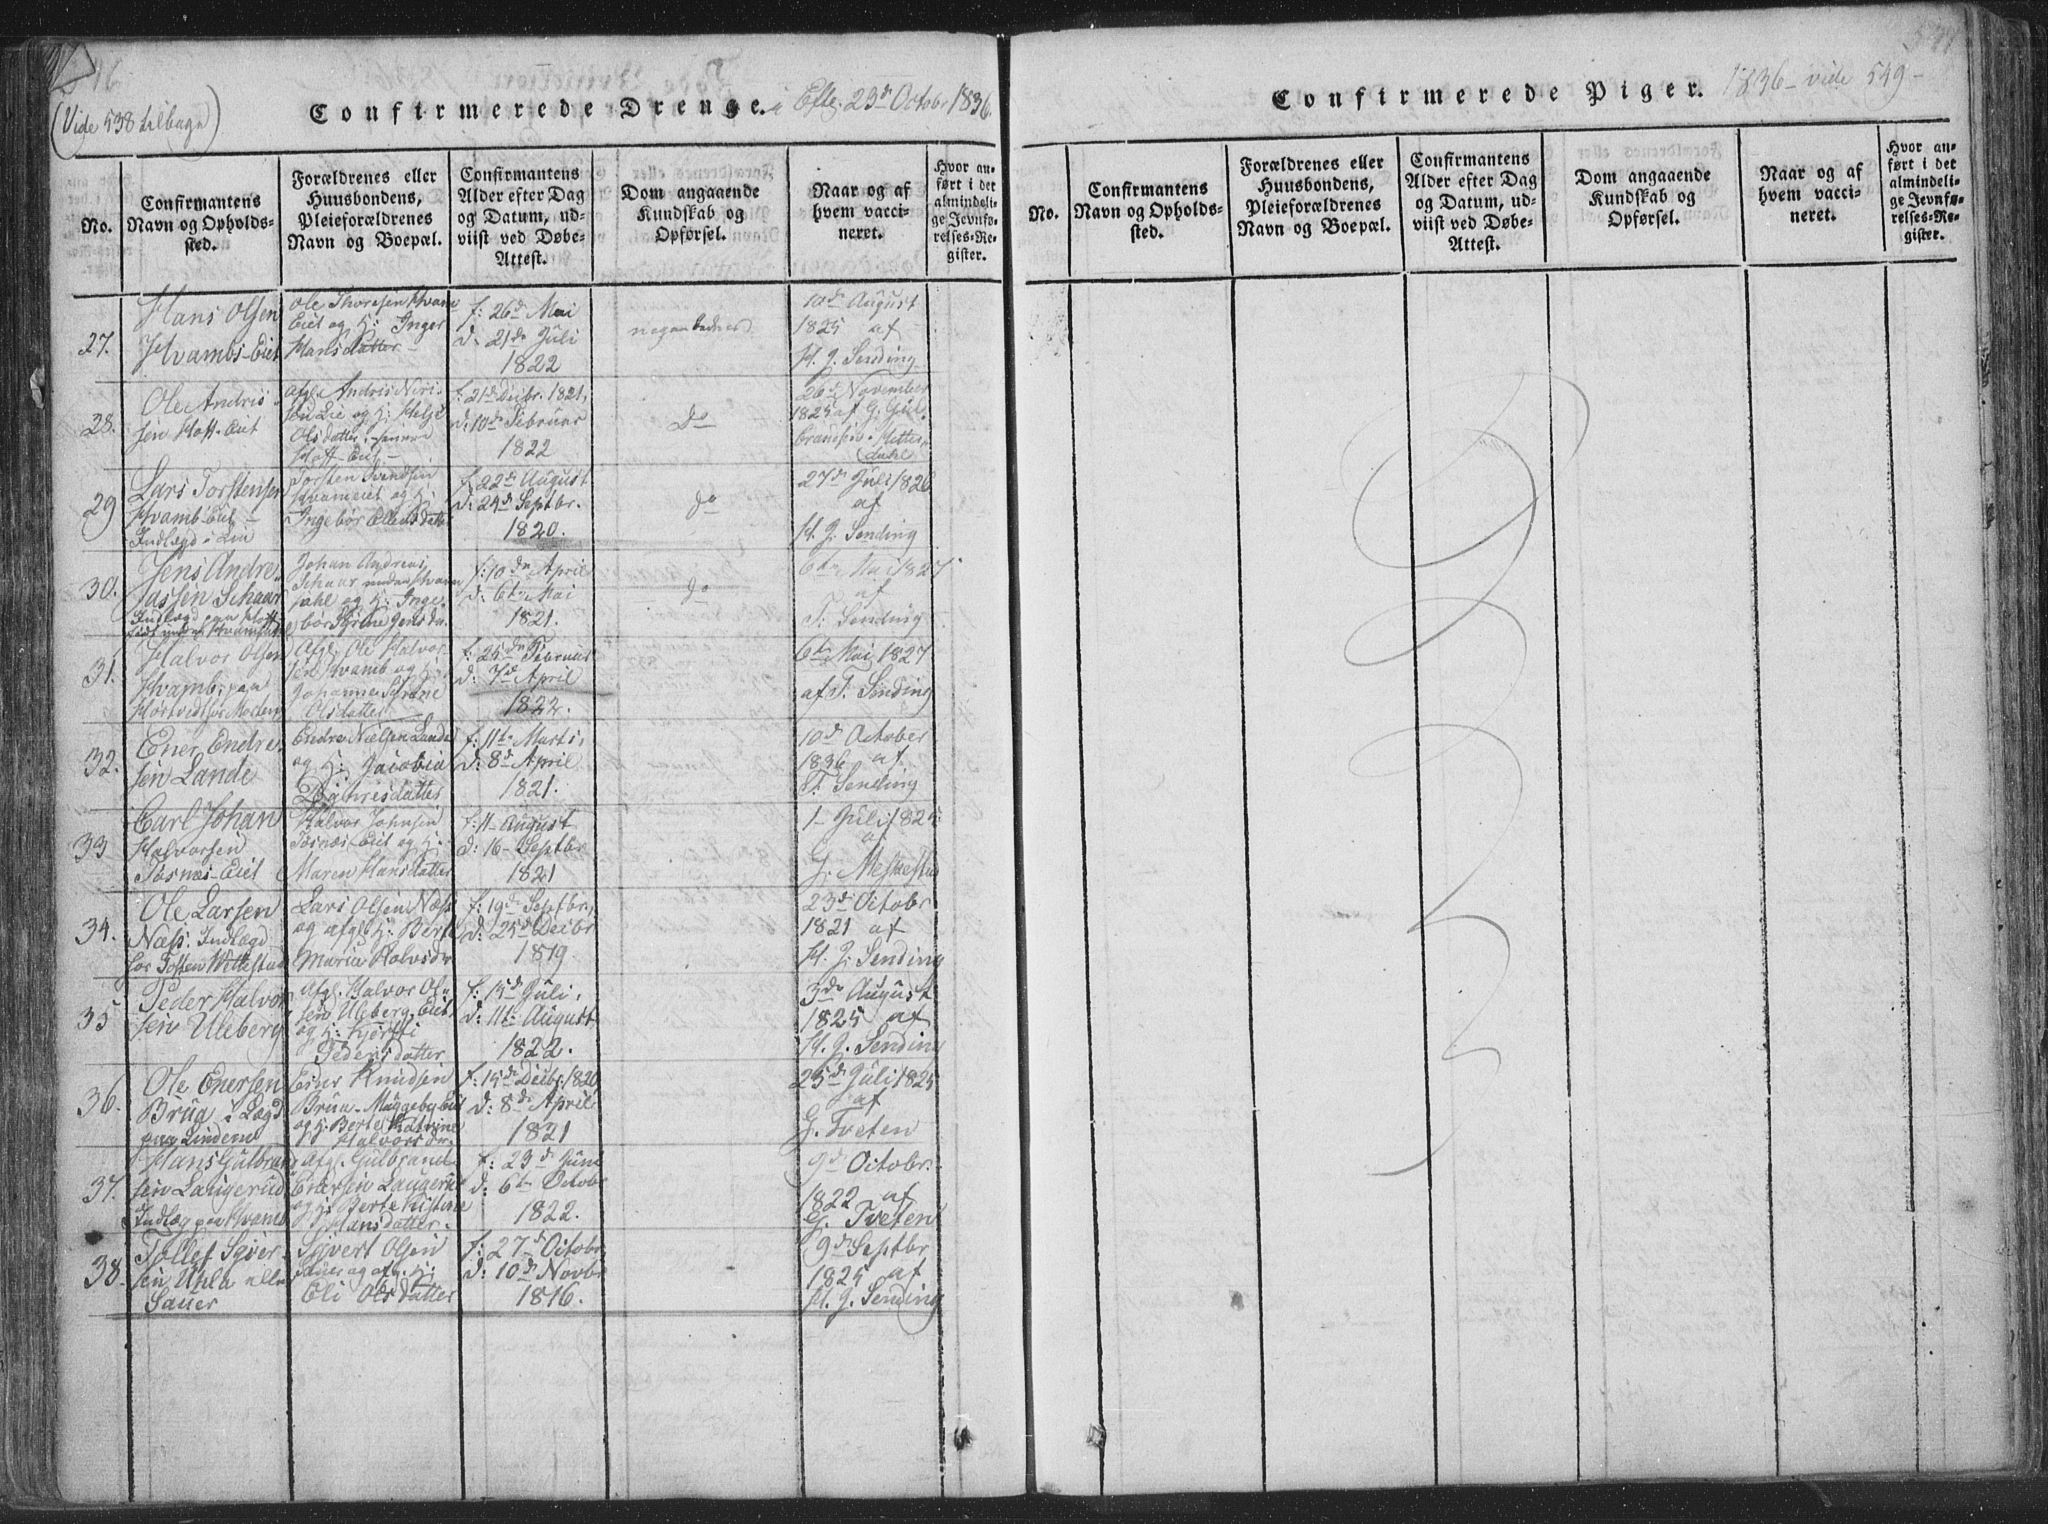 (Vide 538 tilbage)
Confirmerede Drenge. i Efte. 23d Octobr 1836.
No.
Confirmantens
Navn og Opholds-
sted.
Forældrenes eller
Huusbondens,
Pleieforældrenes
Navn og Boepæl.
Confirmantens
Alder efter Dag
og Datum, ud-
viist ved Døbe-
Attest.
Dom angaaende
Kundskab og
Opførsel.
Naar og af
hvem vacci-
neret.
Hvor an-
ført i det
almindeli-
ge Jevnfø-
relses-Re-
gister.
27.
Hans Olsen
Hvambs-Eiet
Ole Thoresen Hvam
Eiet og H: Inger
Hansdatter
f: 26d Mai
d. 21d Juli
1822
10d August
1825 af
H. J. Sending
28.
Ole Andris-
sen Hoff-Eiet
Afg. Andris
Lie og H: Helge
Olsdatter
Hoff-Eiet
f: 21d Decbr. 1821,
d: 10d Februar
1822
do
26d November
1825 af G. Gul-
brandsen Mitter-
dahl
29
Lars Torstensen
Hvamb Eiet
Indlægd i Lia
Torsten Svendsen
Hvameiet og H:
Ingebor Ellensdatter
f: 22d August
d: 24d Septbr.
1820.
do
27d Juli 1826
af
H. J. Sending
30.
Jens Andre-
assen Schaar
Johan Andreas
Schaar under Hvam
og H: Inge-
bor Jens dr.
f: 10d April
d: 6te Mai
1821.
do
6te Mai 1827
af
T. Sending
31.
Halvor Olsen
Hvamb, paa
Afg. Ole Halvor-
sen Hvamb og H:
Johanne
Olsdatter
f: 25d Februar
d: 7d April
1822.
6te Mai 1827
af T. Sending
32.
Ener Endre-
sen Lande
Endre Nielsen Lande
og H: Jacobia
f: 11te Marts,
d: 8d April
1821.
10d October
1836 af
T. Sending
33
Carl Johan
Halvorsen
Tosnæs-Eiet
Halvor Johnsen
Tosnæs-Eiet og H:
Maren Hansdatter
f: 11- August
d: 16- Septbr
1821
1- Juli 1825
af
34.
Ole Larsen
Næss. Indlægd
hos Tosten Wettestad
Lars Olsen Næss
og afg. H: Berte
Maria
f: 19d Septbr,
d: 25d Decbr
1819
23d Octobr
1821 af
H. J. Sending
35
Peder Halvor-
sen Uleberg
Afg. Halvor Ol-
sen Uleberg Eiet,
og H: Kjersti
Pedersdatter
f: 15d Juli,
d: 11te August
1822.
3d August
1825 af
H. J. Sending
36.
Ole Enersen
Brua i Lægd
paa Lindem
Ener Knudsen
Brua- Muggeby Eiet
og H: Berte Katrine
Halvorsdr.
f: 15d Decbr 1820
d: 8d April
1821
25d Juli 1825
af
G. Tveten
37.
Hans Gulbrand-
sen Laugerud
Indlæg paa Hvamb
Afg. Gulbrand
Enersen Laugerud
og H: Berte Kistine
Hansdatter.
f: 23d Juni
d: 6te Octobr
1822.
9d Octobr.
1822 af
G. Tveten
38.
Tollef Siver-
sen Uhla eller
Sauer
Sivert Olsen
Sauer og afg. H:
Eli Olsdatter
f: 27d Octobr
d: 10d Novbr
1816.
9d Septbr
1825 af
H. J. Sending
Confirmerede Piger. 1836- vide 549-
No.
Confirmantens
Navn og Opholds-
sted.
Forældrenes eller
Huusbondens,
Pleieforældrenes
Navn og Boepæl.
Confirmantens
Alder efter Dag
og Datum, ud-
viist ved Døbe-
Attest.
Dom angaaende
Kundskab og
Opførsel.
Naar og af
hvem vacci-
neret.
Hvor an-
ført i det
almindeli-
ge Jevnfø-
relses-Re-
gister.